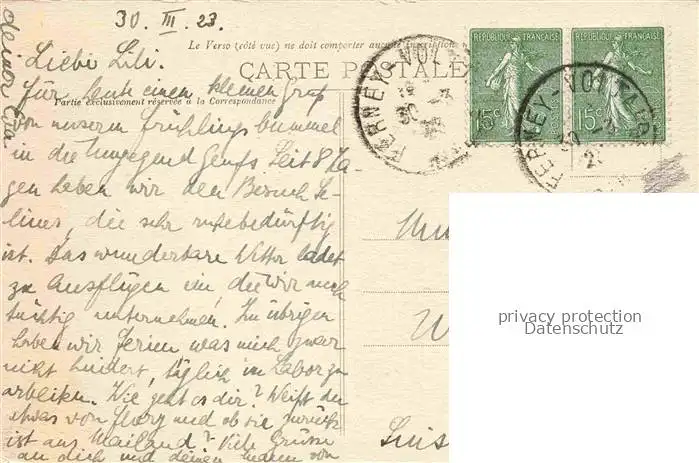 30. III. 23.
Liebe Lili.
Le Verso (côté vue) ne doit comporter aucune inscription
CARTE POSTALE
für heute einen kleinen Gruß
Partie exclusivement réservée à la Correspondance
von unserem Frühlingsbummel
in die Umgegend Genfs. Seit 8 Ta-
gen haben wir den Besuch Se-
lines, die sehr ruhebedürftig
ist. Das wunderbare Wetter ladet
zu Ausflügen ein die wir auch
tüchtig unternehmen. Im übrigen
haben wir Ferien was mich zwar
nicht hindert, täglich im Labor zu
arbeiten. Wie geht es dir? Weißt du
etwas von und ob sie zurück
ist aus Mailand? Viele Grüsse
an dich und deinen Mann von
deiner
RÉPUBLIQUE FRANÇAISE
15c
RÉPUBLIQUE FRANÇAISE
15c
FERNEY-VOLTAIRE
30 -3
FERNEY-VOLTAIRE
30 -3
23
privacy protection
Datenschutz